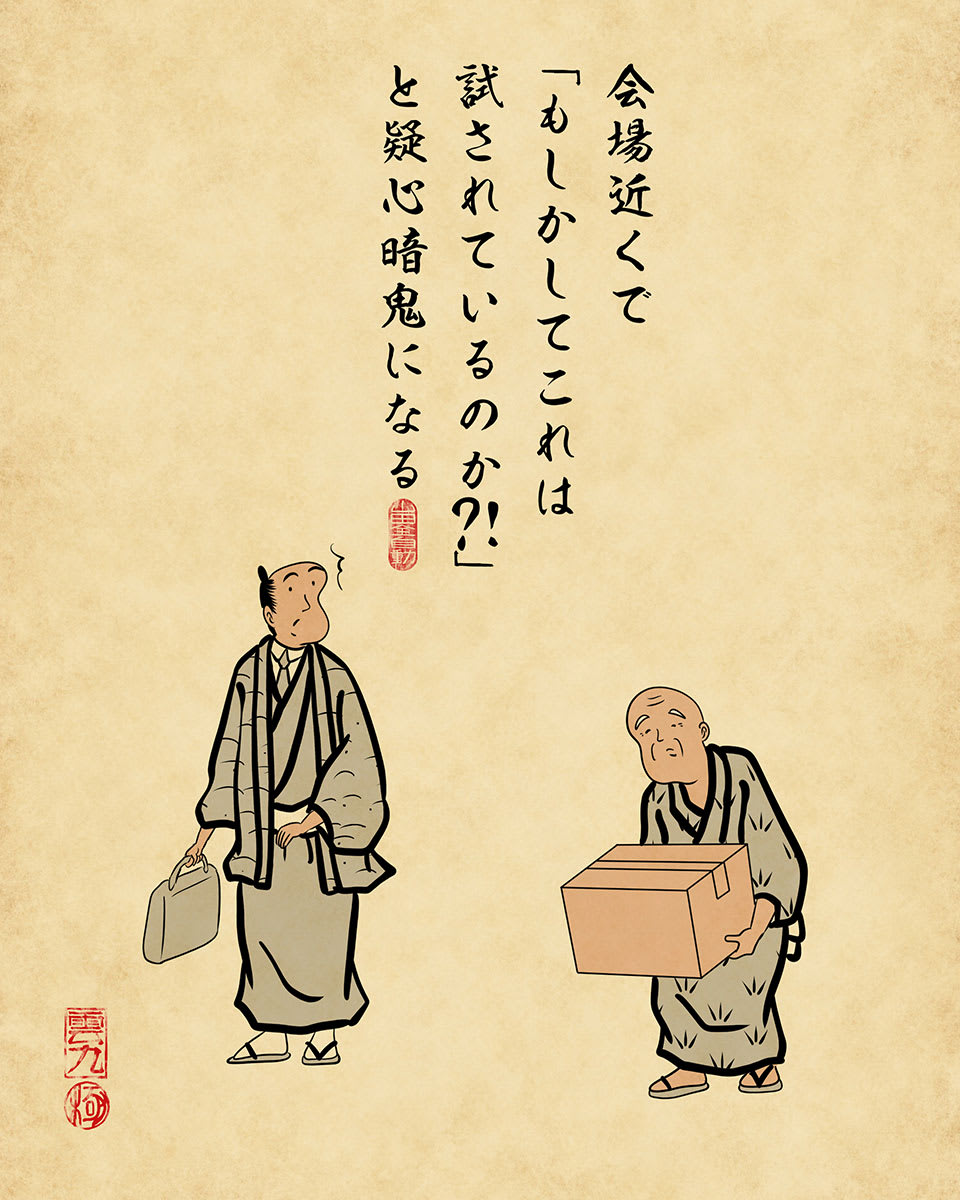 会場近くで
「もしかしてこれは
試されているのか?!」
と疑心暗鬼になる